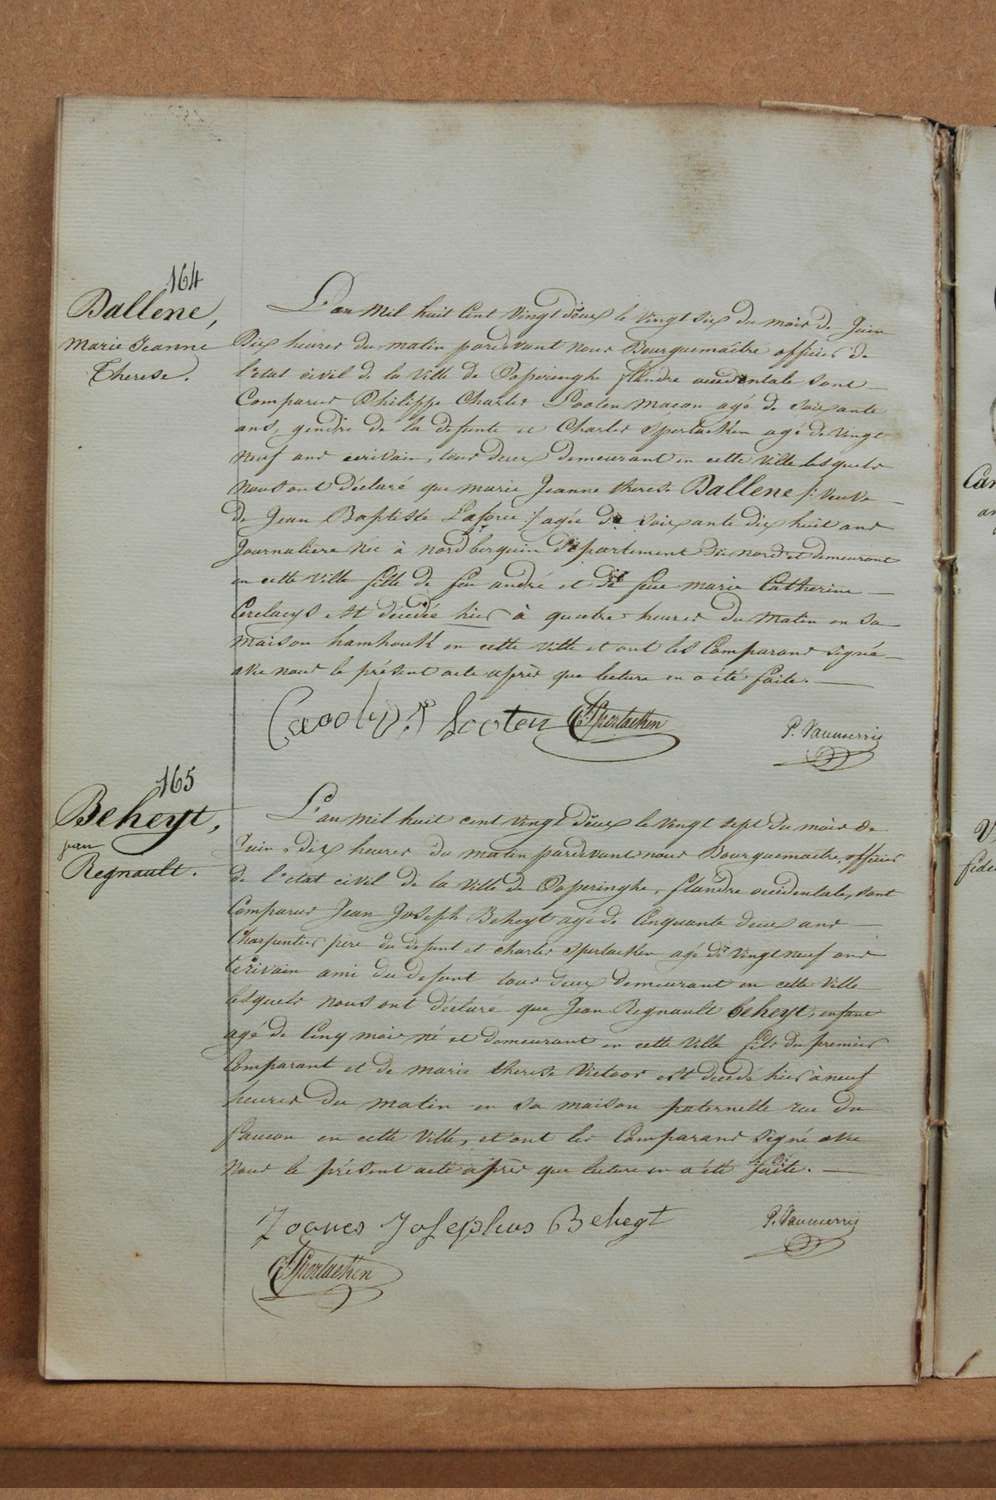 164
Ballene,
Marie Jeanne
Therese.
L'an mil huit cent vingt deux le vingt six du mois de Juin
Dix heures du matin pardevant nous Bourguemaître officier de
l'etat civil de la ville de Poperinghe flandre occidentale sont
Comparus Philippe Charles Looten Macon agé de soixante
ans, gendre de la defunte et Charles Sperlaeken agé de vingt
neuf ans ecrivain, tous deux demeurant en cette ville lesquels
nous ont déclaré que marie Jeanne therese Ballene /: veuve
de Jean Baptiste Laforce :/ agée de soixante dix huit ans
Journaliere née à nordberquin département du nord et demeurant
en cette ville fille de feu andré et de feue marie Catherine
est décédée hier à quatre heures du matin en sa
maison hamhoek en cette ville et ont les Comparans signé
avec nous le présent acte après que lecture en a été faite.
Looten CSperlaeken
P. Vanmerris
165
Beheyt,
jean
Regnault.
L'an mil huit cent vingt deux le vingt sept du mois de
Juin, dix heures du matin pardevant nous Bourguemaitre, officier
de l'etat civil de la ville de Poperinghe, flandre occidentale, sont
Comparus Jean Joseph Beheyt agé de Cinquante deux ans
Charpentier pere du defunt et charles Sperlaeken agé de vingt neuf ans
Ecrivain ami du defunt tous deux demeurant en cette ville
lesquels nous ont déclaré que Jean Regnault Beheyt, enfant
agé de Cinq mois né et demeurant en cette ville fils du premier
Comparant et de marie therese Victoor est decedé hier à neuf
heures du matin en sa maison paternelle rue du
faucon en cette ville, et ont les Comparans signé avec
nous le présent acte après que lecture en a été faite.
Joanes Josephus Beheyt
P. Vanmerris
CSperlaeken